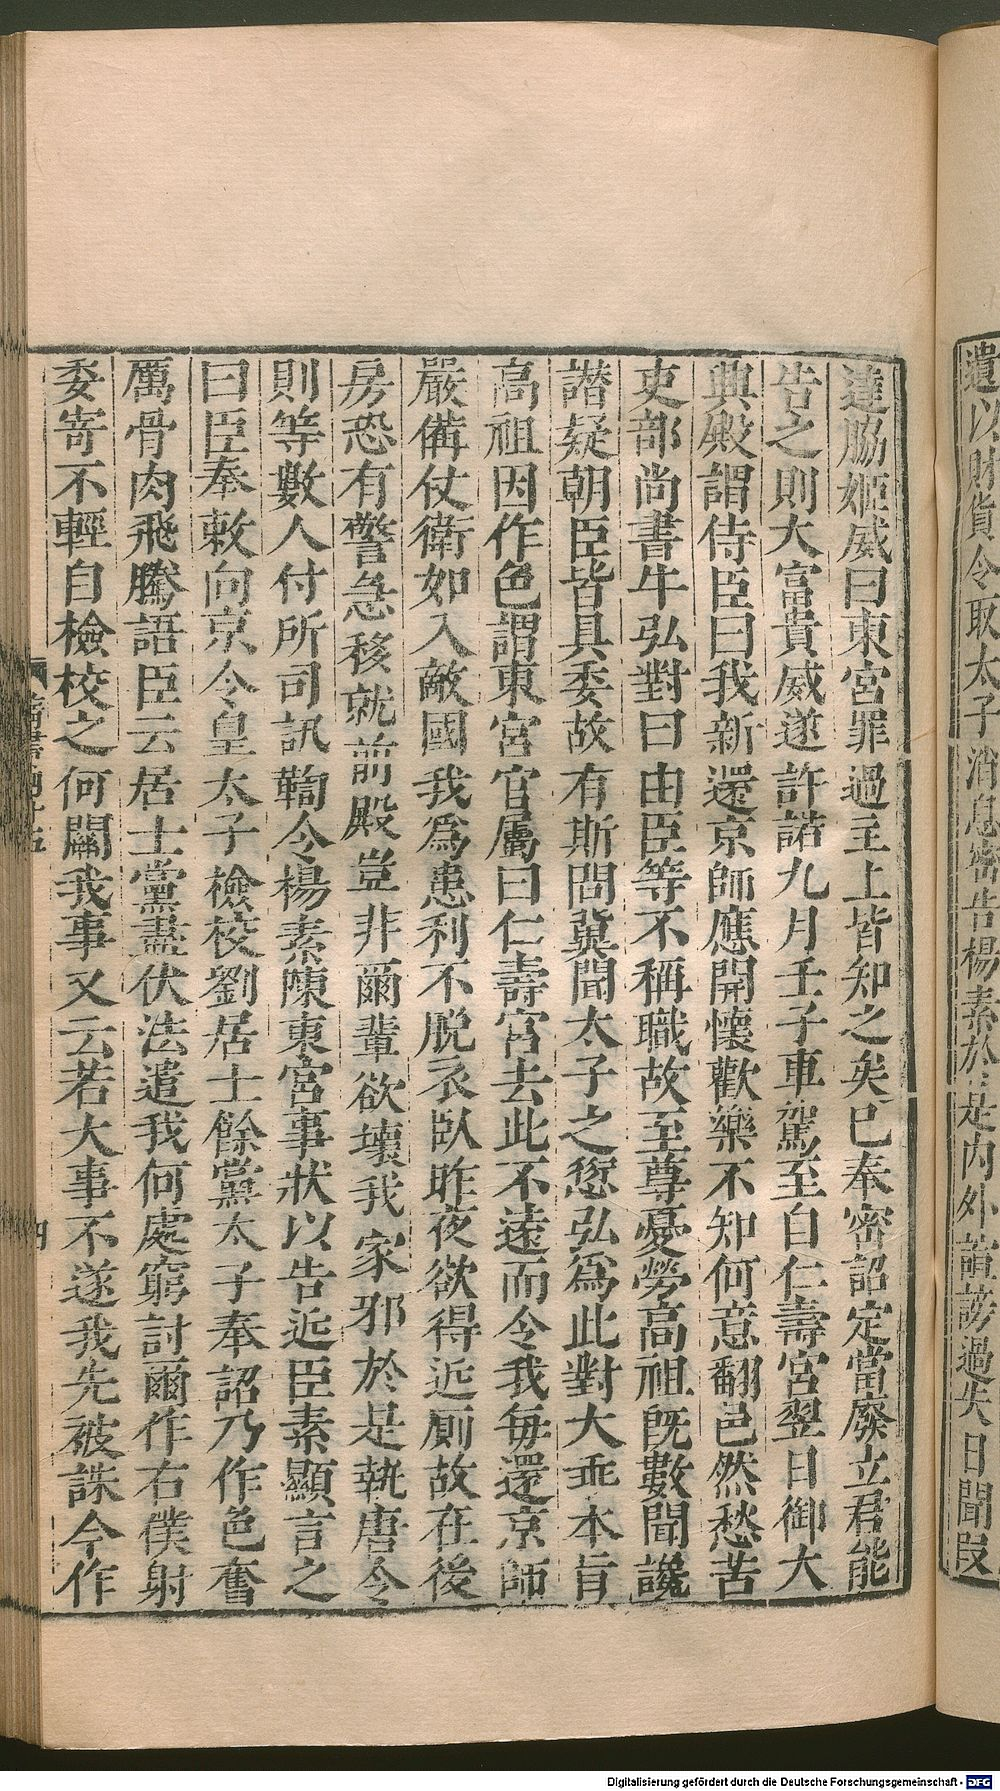 遺以財貨令取太子消息密告楊素於是内外諠謗過失日聞段
達脇姬威曰東宮罪過主上皆知之矣已奉密詔定當廢立君能
告之則大富貴威遂許諾九月壬子車駕至自仁壽宮翌日御大
典殿謂侍臣曰我新還京師應開懷歡樂不知何意翻邑然愁苦
吏部尚書牛弘對曰由臣等不稱職故至尊憂勞高祖既數聞讒
譛疑朝臣皆具委故有斯問冀聞太子之愆弘爲此對大乖本旨
高祖因作色謂東宮官屬曰仁壽宮去此不遠而令我每還京師
嚴備仗衛如入敵國我爲患利不脱衣臥昨夜欲得近厠故在後
房恐有警急移就前殿豈非爾輩欲壞我家邪於是執唐令
則等數人付所司訊鞫令楊素陳東宮事狀以告近臣素顯言之
曰臣奉敕向京令皇太子檢校劉居士餘黨太子奉詔乃作色奮
厲骨肉飛騰語臣云居士黨盡伏法遣我何處窮討爾作右僕射
委寄不輕自檢校之何關我事又云若大事不遂我先被誅今作
四
Digitalisierung gefördert durch die Deutsche Forschungsgemeinschaft - DFG